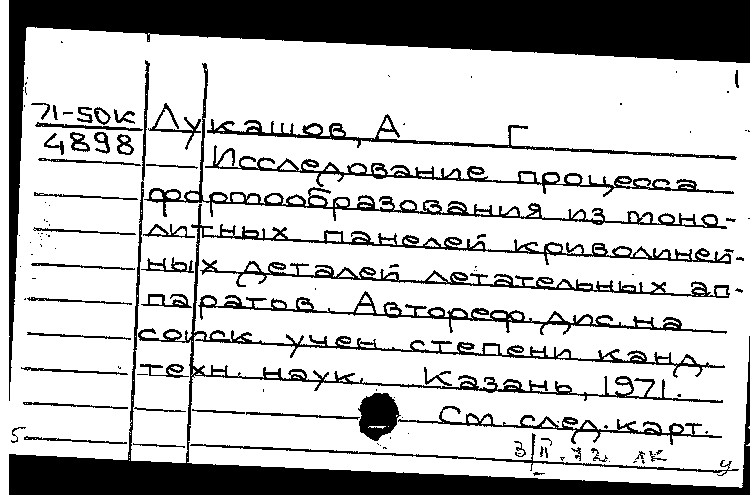 71-50к Лукашов, А Г
4898
Исследование процесса
формообразования из моно-
литных панелей криволиней-
ных деталей летательных ап-
паратов. Автореф. дис. на
соиск. учен. степени канд.
техн. наук. Казань, 1971.
См. след. карт.
3/II.72 ЛК